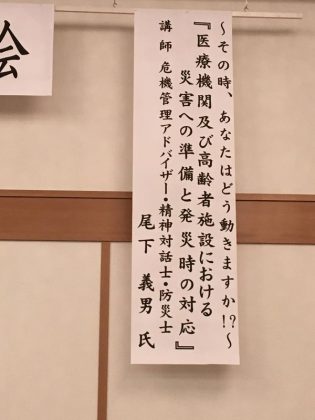 ～その時、あなたはどう動きますか!?～
『医療機関及び高齢者施設における
災害への準備と発災時の対応』
講師 危機管理アドバイザー・精神対話士・防災士
尾下 義男 氏
会